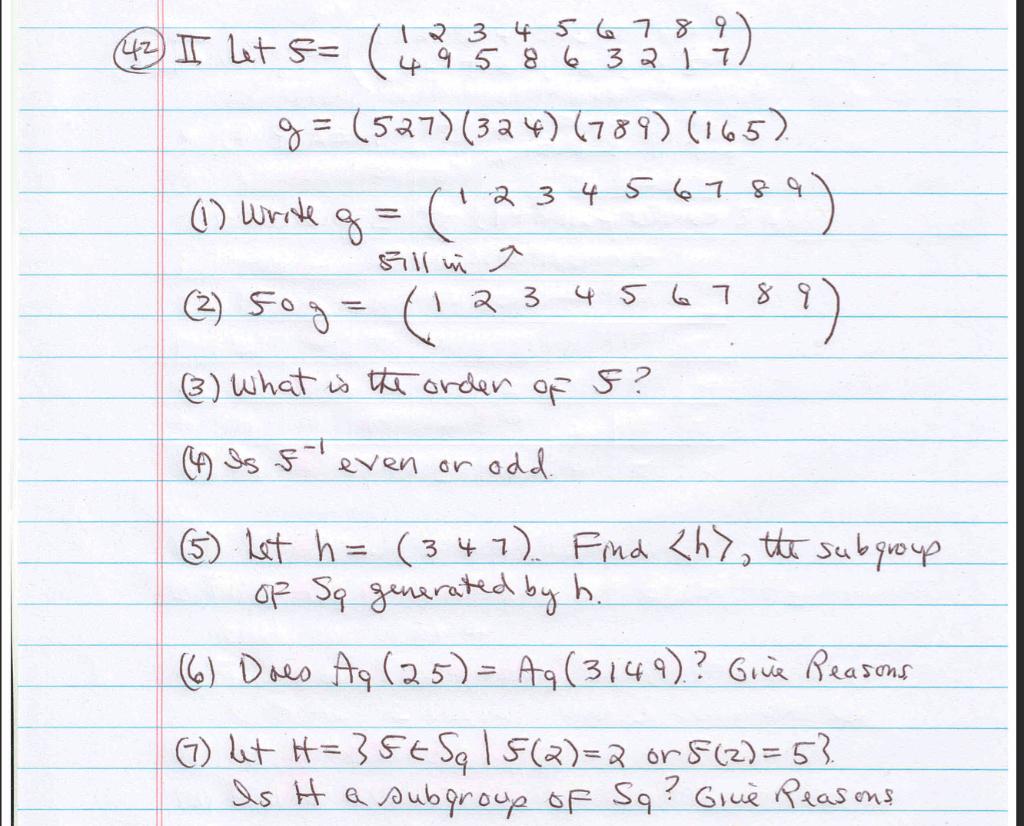 42 II Let f = ( 1 2 3 4 5 6 7 8 9 )
4 9 5 8 6 3 2 1 7
g = (527)(324)(789)(165).
(1) Write g = ( 1 2 3 4 5 6 7 8 9 )
fill in ↗
(2) f∘g = ( 1 2 3 4 5 6 7 8 9 )
(3) What is the order of f?
(4) Is f⁻¹ even or odd.
(5) Let h = (3 4 7). Find <h>, the subgroup
of S₉ generated by h.
(6) Does A₉(25) = A₉(3149)? Give Reasons
(7) Let H = {f ∈ S₉ | f(2)=2 or f(2)=5}.
Is H a subgroup of S₉? Give Reasons